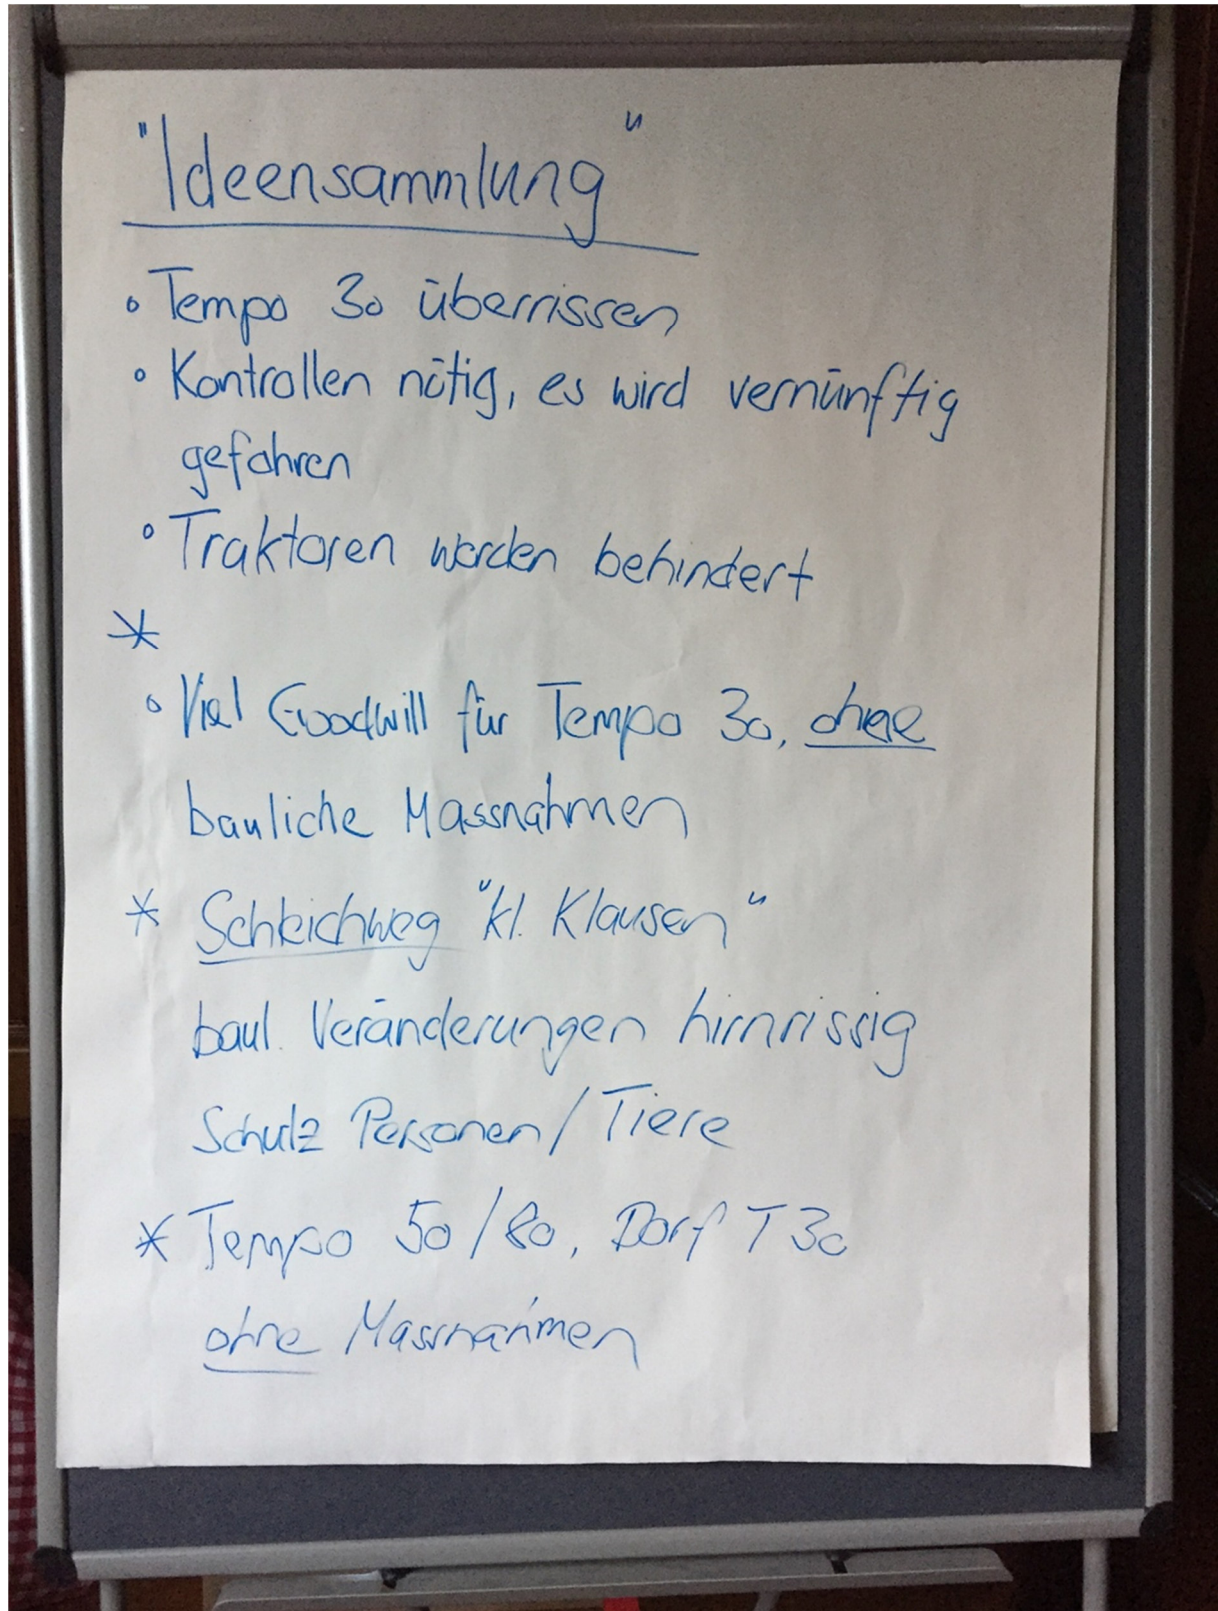 "Ideensammlung"
° Tempo 30 überrissen
° Kontrollen nötig, es wird vernünftig
gefahren
° Traktoren werden behindert
*
° Viel Goodwill für Tempo 30, ohne
bauliche Massnahmen
* Schleichweg "kl. Klausen"
baul. Veränderungen hirnrissig
Schutz Personen/Tiere
* Tempo 50/80, Dorf T 30
ohne Massnahmen